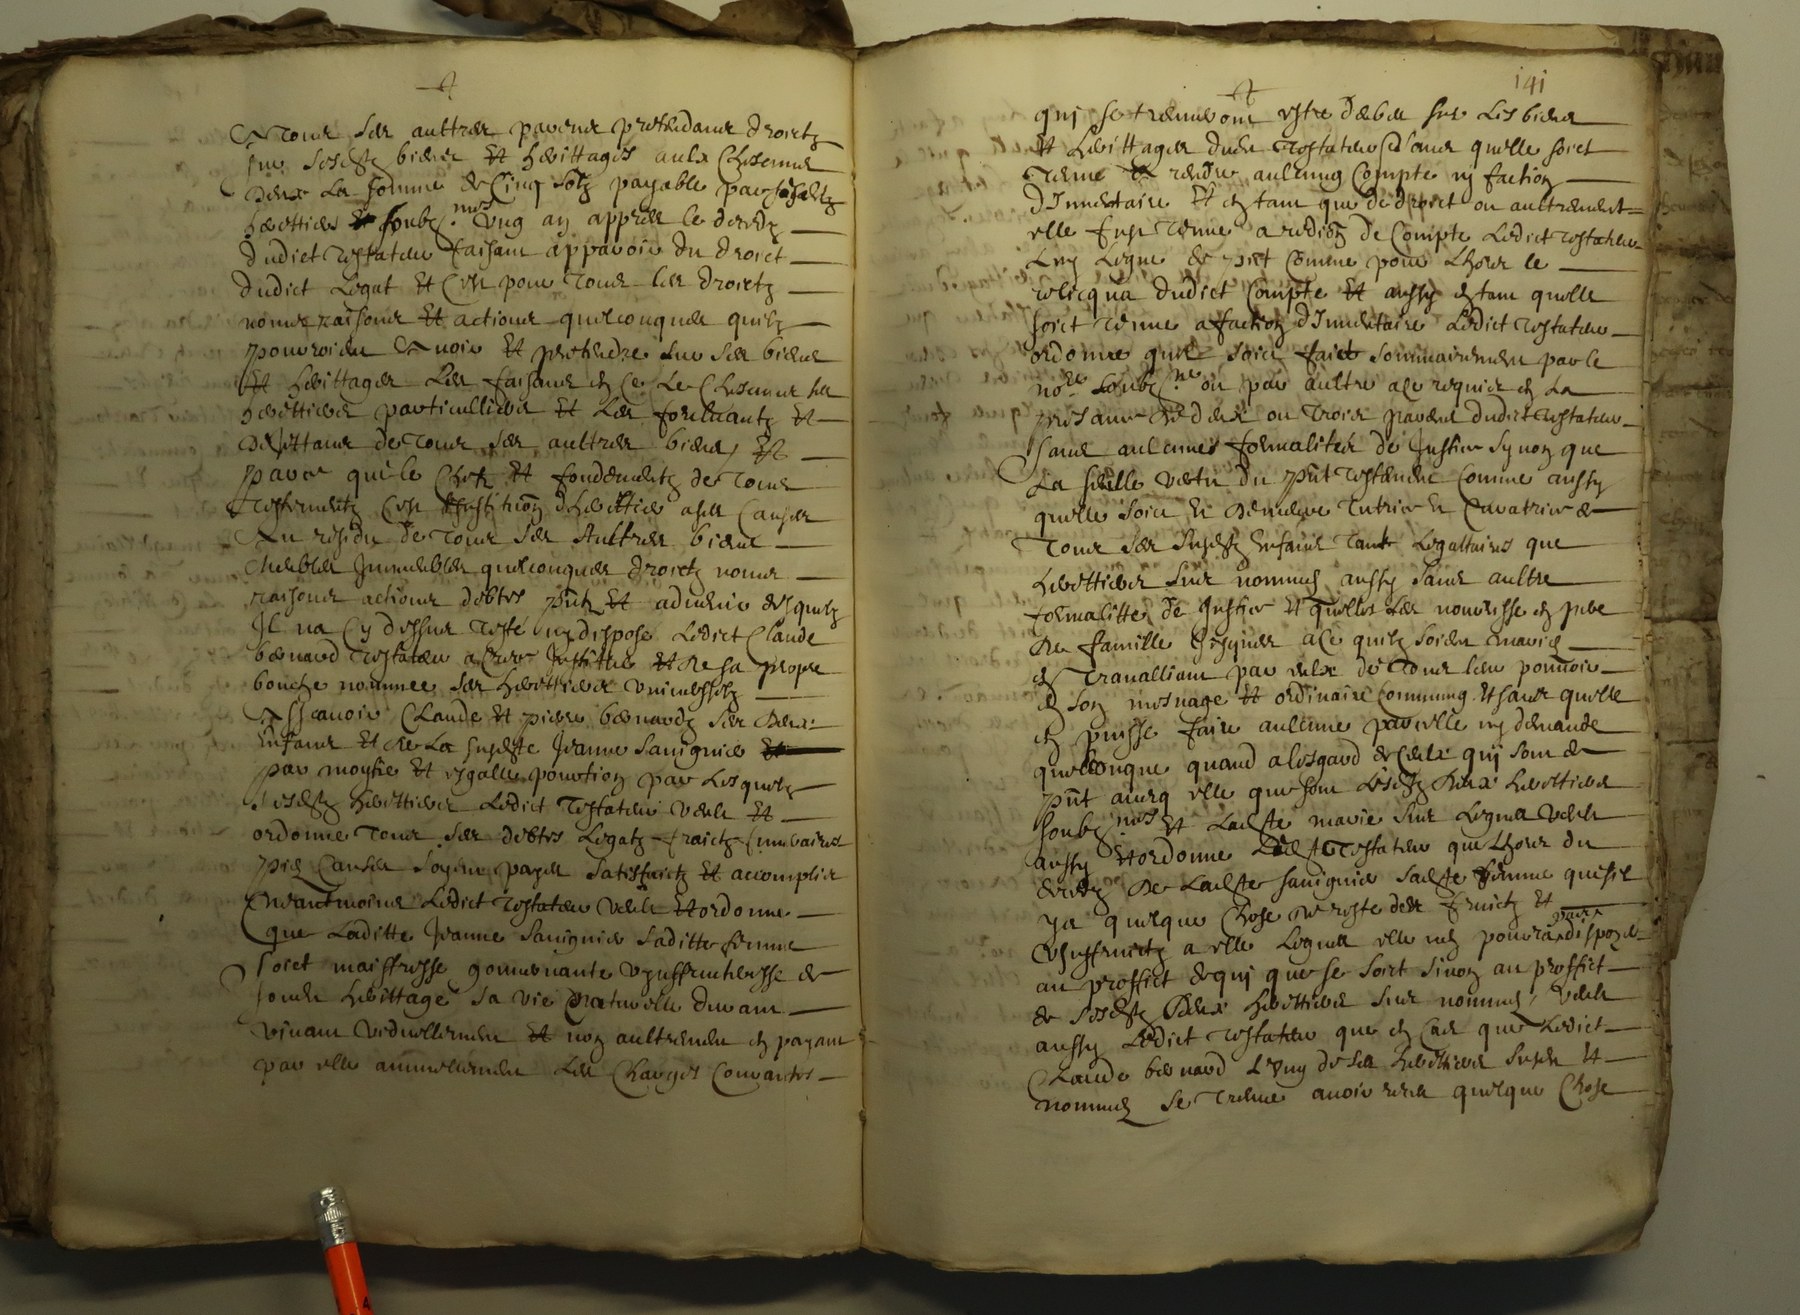 A tous ses aultres parens pretendans droictz
sur sesdictz biens et heritages aulx chascuns
deux la somme de cinq solz payable par sesdictz
heretiers soubz nos ung an appres le decedz
dudict testateur faisant apparoir du droict
dudict legat et c'est pour tous les droictz
noms raisons et actions quelconques quilz
pourroient avoir et pretendre sur ses biens
et heritages les faisans en ce le chascuns ses
heretiers particulliers et les forcluantz et
dejettans de tous ses aultres biens et
parce que le chefz et fondementz de tous
testementz c'est institution dheretier a ses causes
Au residu de tous ses aultres biens
meubles immeubles quelconques droictz noms
raisons actions debtes pntz et advenir desquelz
Il na cy dessus testé ny disposé ledict Claude
bernard testateur a cree institué et de sa propre
bouche nommee ses heretiers universselz
Ascavoir Claude et pierre bernardz ses deux
enfans et de la susdicte Jeanne Sauignier
par moytie et esgalle pourtion par lesquelz
sesdictz heretiers ledict testateur veult et
ordonne tous ses debtes legatz fraictz funeraires
pies causes soyent payes satisfaictz et accomplis
Neantmoins ledict testateur veult et ordonne
que laditte Jeanne Sauignier saditte femme
soict maistresse gouvernante usuffructuresse de
son heritage sa vie naturelle durant
vivant viduellement et non aultrement en payant
par elle annuellement les charges courantes
141
quj se treuveront estre deben sur les biens
et heritages dudict testateur sans quelle soict
tenue rendre aulcung compte ny faction
d'Inventaire et en tant que de droict ou aultrement
elle fust tenue a redition de compte ledict testateur
luy legue de pnt comme pour lhors le
relicqua dudict compte et aussy en tant quelle
soict tenue a faction d'Inventaire ledict testateur
ordonne quil soict faict sommairement par le
nore soubz ne ou par aultre a ce requier en la
presance de deux ou trois parens dudict testateur
sans aulcunes formalites de Justice synon que
la seulle vertu du pnt testament comme aussy
quelle soict et demeure tutrice et curatrice de
tous ses susdictz enfans tant legattaires que
heretiers sus nommes aussy sans aultre
formalitté de Justice et quelles les nourisse en pere
de famille jusques a ce quilz soient maries
en travalliant par eulx de tous leur pouvoir
en son mesnage et ordinaire commung et sans quelle
en puisse faire aulcune parcelle ny demande
quelconque quand a lesgard de ceulx quj sont de
pnt avecq elle que sont lesdictz deux heretiers
soubz nes et ladicte marie sus leguee veult
aussy et ordonne ledict testateur que lhors du
decedz de ladicte sauignier sadicte femme quesil
ya quelque chose de reste des fruictz et
usuffruictz a elle legues elle nen pourra disposer
au proffict de quj que se soict sinon au proffict
de sesdictz deux heretiers sus nommes veult
aussy ledict testateur que en cas que ledict
Claude bernard l'ung de ses heretiers susdict et
nommes se treuve avoir quelque chose